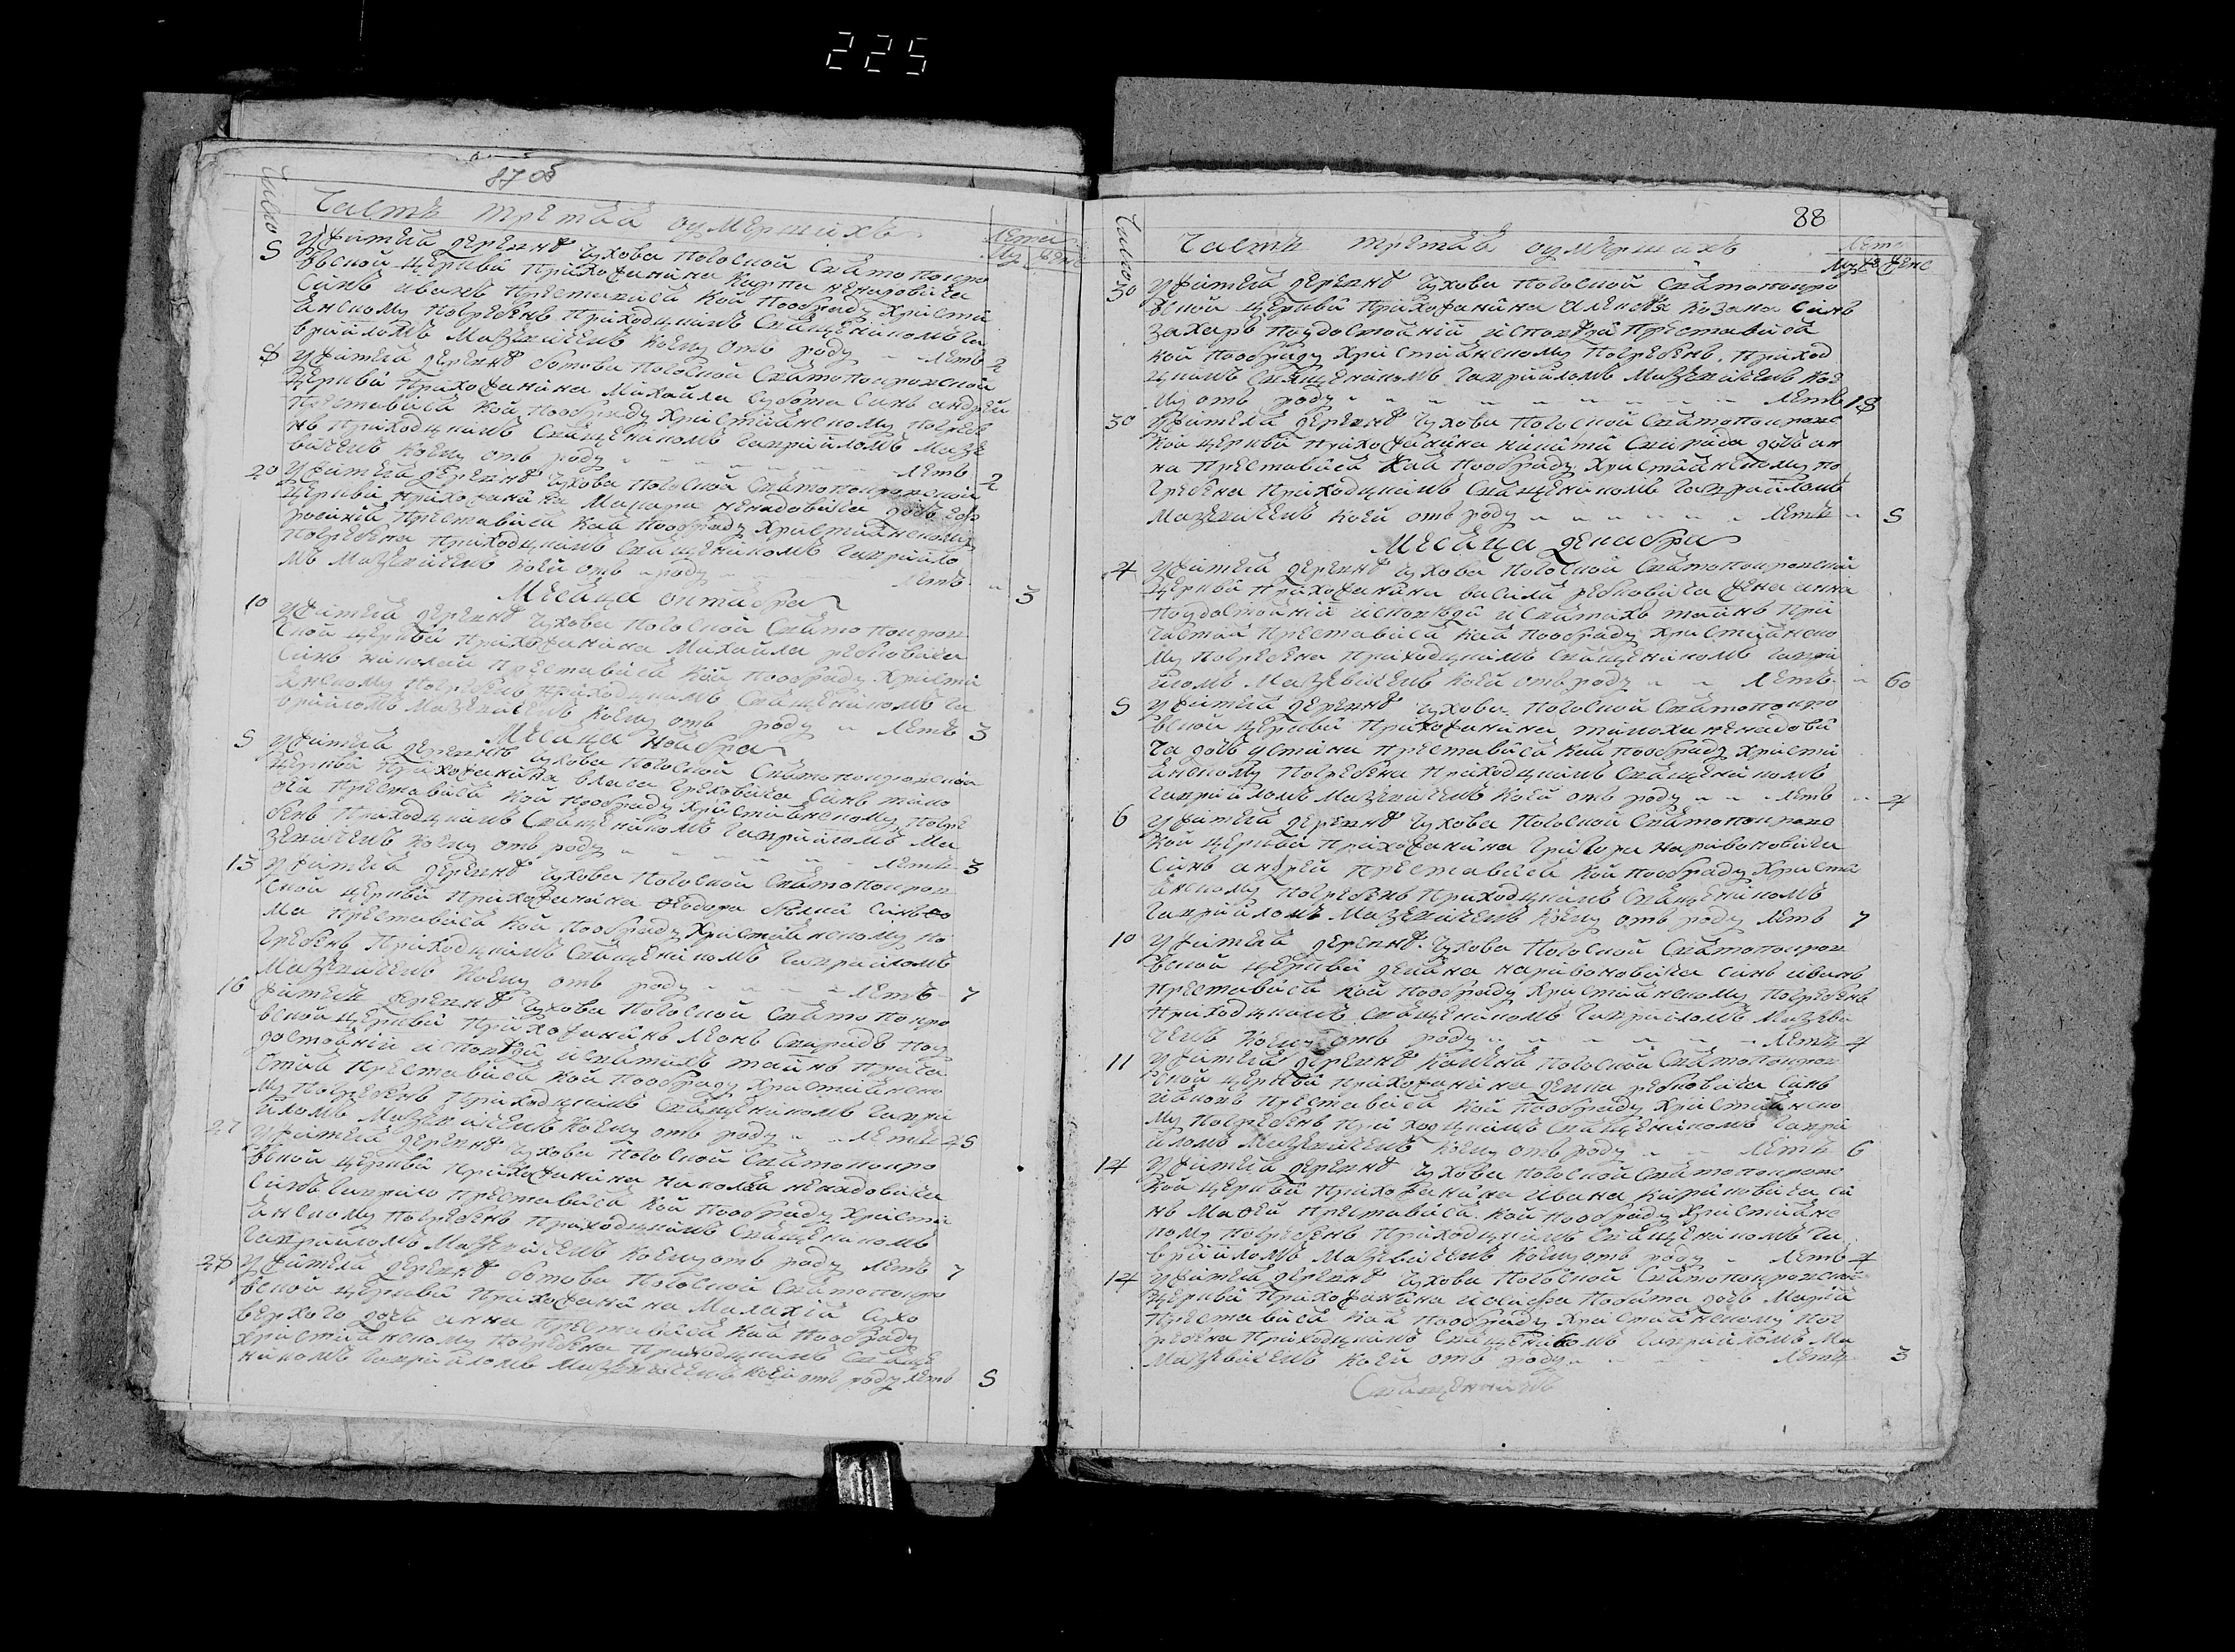 225
87 об
Число
Часть третія оумершихъ
Лета
Муж Жене
5 У жителя деревнѣ Чухова Погоской Свято Покро
вской церкви Прихожанина Карпа Ненадовича
Синъ иванъ Преставися кой пообряду Христи
анскому Погребенъ Приходцкимъ Священикомъ Га
врииломъ Мацкевичемъ коему отъ роду летъ 2
8 У жителя деревнѣ Ботова Погоской Свято Покровской
Церкви Прихожанина Михайла Субота Синъ андрей
Преставися кой пообряду Христианскому Погребе
нъ Приходцкимъ Священикомъ Гаврииломъ Мацке
вичемъ коему отъ роду летъ 2
20 У жителя деревнѣ Чухова Погоской Свято Покровской
Церкви Прихожанина Макара Ненадовича дочь
Преставися кая пообряду Христианскому
Погребена Приходцкимъ Священикомъ Гавриило
мъ Мацкевичемъ коей отъ роду летъ 3
Месяца октября
10 У жителя деревнѣ Чухова Погоской Свято Покров
ской церкви Прихожанина Михайла Редковича
Синъ николай Преставися кой пообряду Христи
анскому Погребенъ Приходцкимъ Священикомъ Га
врииломъ Мацкевичемъ коему отъ роду летъ 3
Месяца Ноября
5 У жителя деревнѣ Чухова Погоской Свято Покровской
Церкви Прихожанина власа Греховича Синъ тимо
Преставися кой пообряду Християнскому Погре
бенъ Приходцкимъ Священикомъ Гаврииломъ Ма
цкевичемъ коему отъ роду летъ 3
13 У жителя деревнѣ Чухова Погоской Свято Покров
ской церкви Прихожанина Ѳеодора Синъ Ѳо
ма Преставися кой пообряду Християнскому По
гребенъ Приходцкимъ Священикомъ Гаврииломъ
Мацкевичемъ коему отъ роду летъ 7
16 житель деревнѣ Чухова Погоской Свято Покро
вской церкви Прихожанинъ Леонъ Свиридъ Поу
достоении исповеди и святихъ таинъ Прича
стия Преставися кой пообряду Християнско
му Погребенъ Приходцкимъ Священикомъ Гаври
иломъ Мацкевичемъ коему отъ роду летъ 45
27 У жителя деревнѣ Чухова Погоской Свято Покро
вской церкви Прихожанина николая Ненадовича
Синъ Гаврило Преставися кой пообряду Христи
анскому Погребенъ Приходцкимъ Священикомъ
Гаврииломъ Мацкевичемъ коему отъ роду летъ 7
28 У жителя деревнѣ Ботова Погоской Свято Покро
вской церкви Прихожанина Малахия Сухо
верхого дочь анна Преставися кая пообряду
Християнскому Погребена Приходцкимъ Свяще
никомъ Гаврииломъ Мацкевичемъ коей отъ роду летъ 5
88
Число
Часть третія оумершихъ
Лета
Муже Жене
30 У жителя деревнѣ Чухова Погоской Свято Покро
вской церкви Прихожанина Алексея Козака Синъ
Захаръ Поудостоении исповеди Преставися
кой пообряду Християнскому Погребенъ Приход
цкимъ Священикомъ Гаврииломъ Мацкевичемъ кое
му отъ роду летъ 18
30 У жителя деревнѣ Чухова Погоской Свято Покровс
кой церкви Прихожанина никити Свирида дочь ан
на Преставися кая пообряду Християнскому по
гребена Приходцкимъ Священикомъ Гаврииломъ
Мацкевичемъ коей отъ роду летъ 5
Месяца декабра
4 У жителя деревнѣ Чухова Погоской Свято Покровской
Церкви Прихожанина василя Редковича жена анна
Поудостоении исповеди и Святихъ таинъ При
частия Преставися кая пообряду Християнско
му Погребена Приходцкимъ Священикомъ Гаври
иломъ Мацкевичемъ коей отъ роду летъ 60
5 У жителя деревнѣ Чухова Погоской Свято Покро
вской церкви Прихожанина тимоха Ненадови
ча дочь устина Преставися кая пообряду Христи
анскому Погребена Приходцкимъ Священикомъ
Гаврииломъ Мацкевичемъ коей отъ роду летъ 4
6 У жителя деревнѣ Чухова Погоской Свято Покровс
кой церкви Прихожанина Григора Наривоновича
Синъ андрей Преставися кой пообряду Христи
анскому Погребенъ Приходцкимъ Священикомъ
Гаврииломъ Мацкевичемъ коему отъ роду летъ 7
10 У жителя деревнѣ Чухова Погоской Свято Покров
вской церкви демяна Наривоновича синъ иванъ
Преставися кой пообряду Християнскому Погребенъ
Приходцкимъ Священикомъ Гаврииломъ Мацкеви
чемъ коему отъ роду летъ 4
11 У жителя деревнѣ Погоской Свято Покров
ской церкви Прихожанина Редковича Синъ
Преставися кой пообряду Християнско
му Погребенъ Приходцкимъ Священикомъ Гаври
иломъ Мацкевичемъ коему отъ роду летъ 6
14 У жителя деревнѣ Чухова Погоской Свято Покровс
кой церкви Прихожанина ивана Карповича си
нъ Маѳей Преставися кой пообряду Християнс
кому Погребенъ Приходцкимъ Священикомъ Га
врииломъ Мацкевичемъ коему отъ роду летъ 4
14 У жителя деревнѣ Чухова Погоской Свято Покровской
Церкви Прихожанина иосифа дочь Мария
Преставися кая пообряду Християнскому Пог
ребена Приходцкимъ Священикомъ Гаврииломъ Ма
Мацкевичемъ коей отъ роду летъ 3
Священникъ